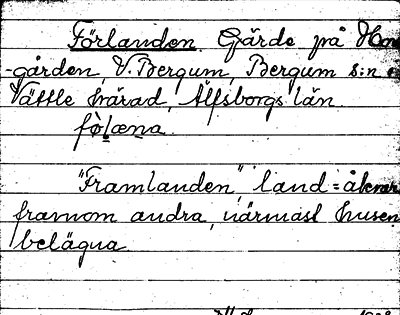 Förlanden. Gärde på Hor
-gården, V. Bergum, Bergum s:n
Vättle härad, Älfsborgs län.
fòlæna.
"Framlanden", land = åkrar
framom andra, närmast husen
belägna.